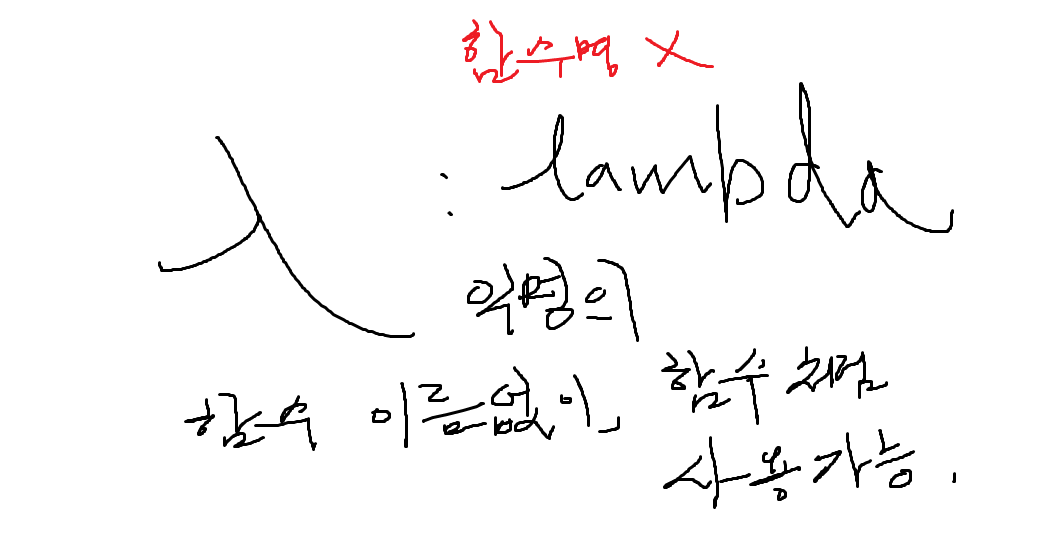 함수명 X
λ : lambda
익명의
함수 이름없이, 함수처럼
사용가능.